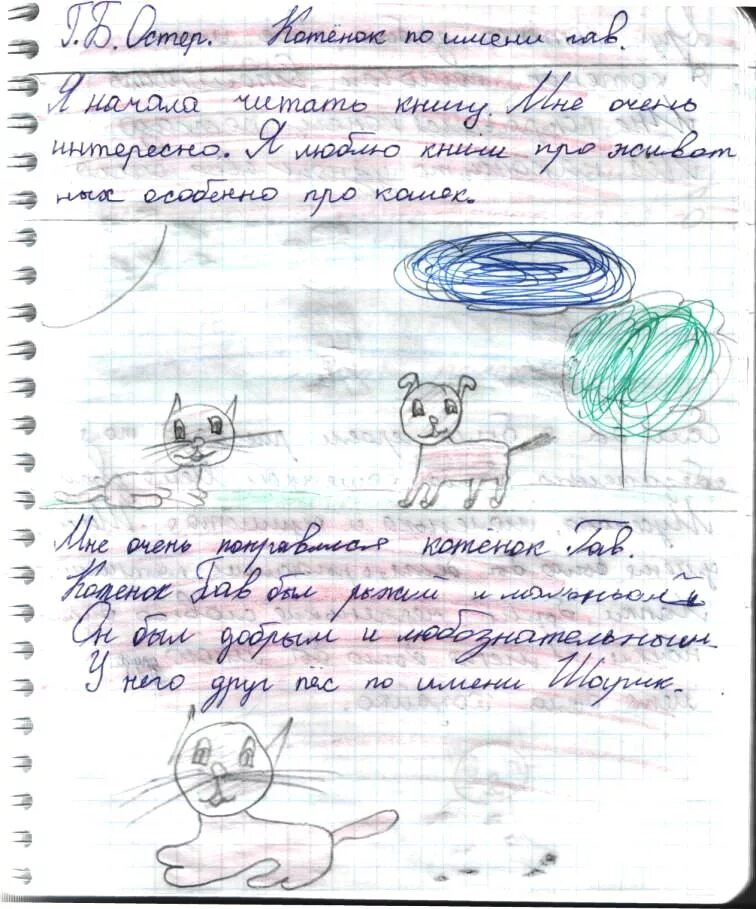 Г.Б. Остер. Котёнок по имени гав.
Я начала читать книгу. Мне очень
интересно. Я люблю книги про живот
ных особенно про кошек.
Мне очень понравился котёнок Гав.
Котенок Гав был рыжий и маленький
Он был добрым и любознательным
У него друг пёс по имени Шарик.